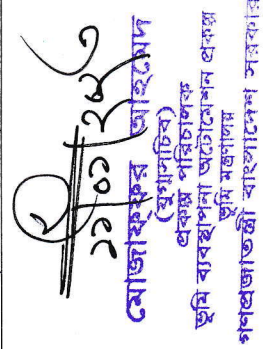 ১১.০১.২৬
মোজাফ্ফর আহমেদ
(যুগ্মসচিব)
প্রকল্প পরিচালক
ভূমি ব্যবস্থাপনা অটোমেশন প্রকল্প
ভূমি মন্ত্রণালয়
গণপ্রজাতন্ত্রী বাংলাদেশ সরকার